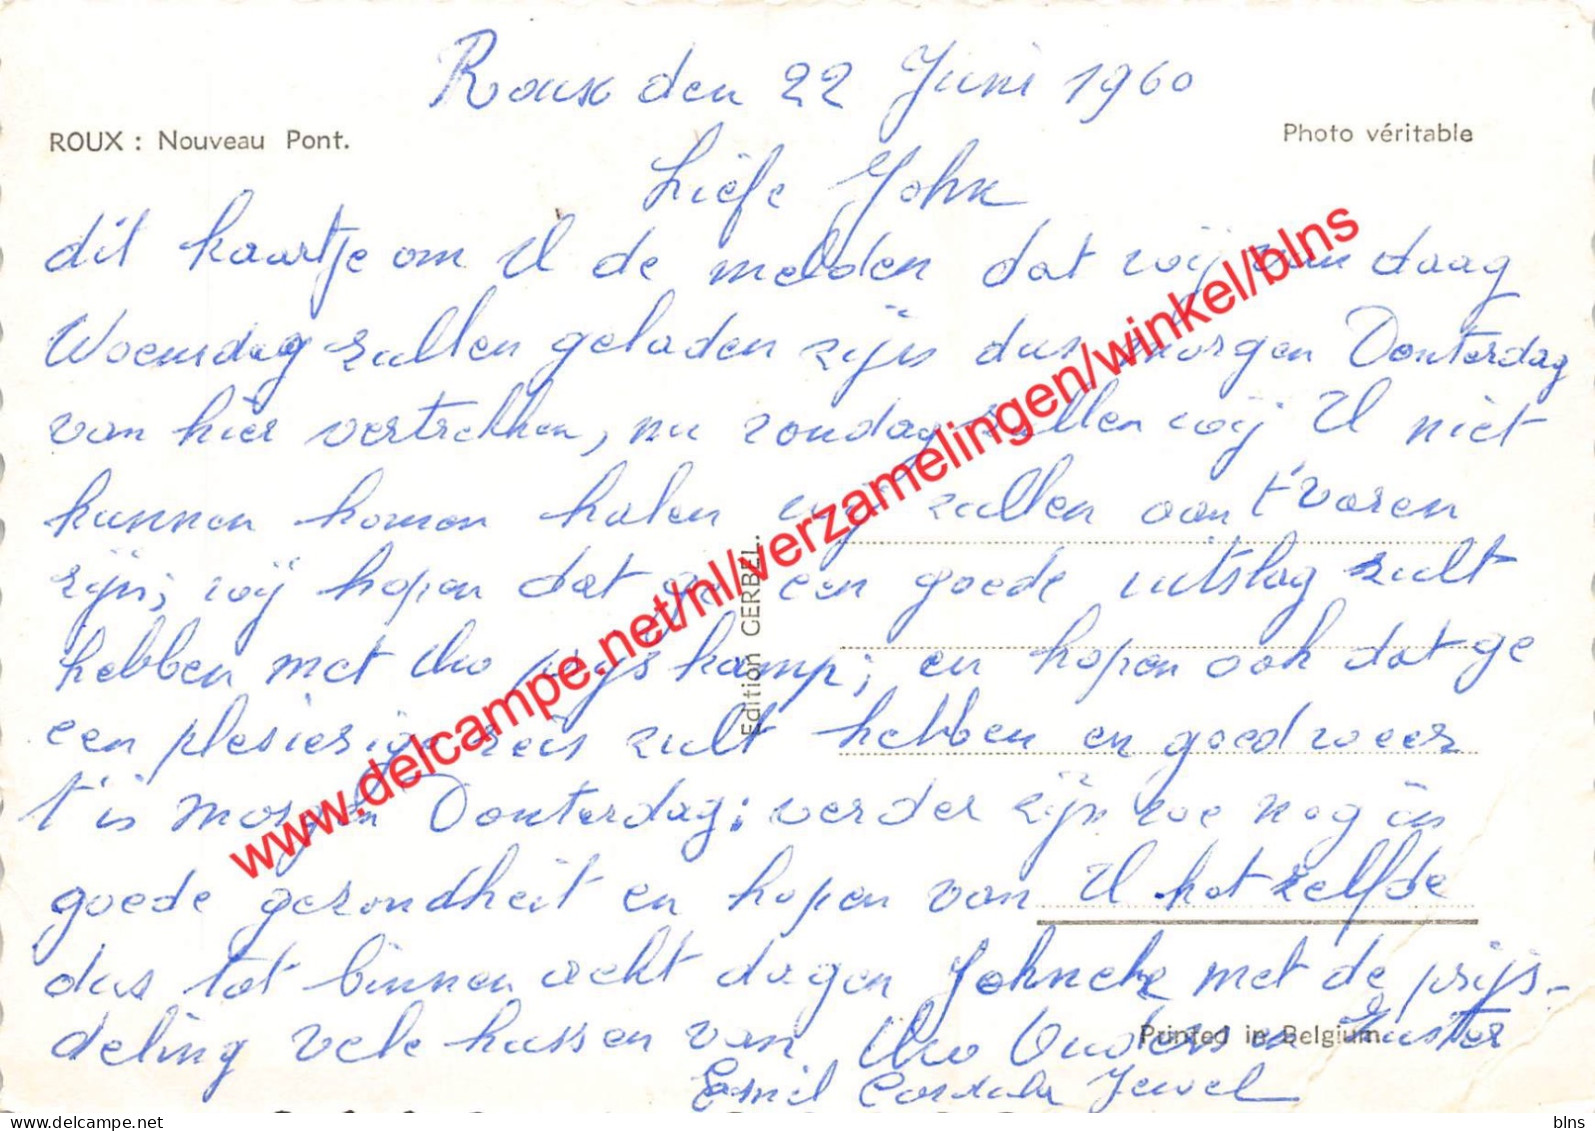 Roux den 22 Juni 1960
ROUX : Nouveau Pont.
Photo véritable
Liefe John
dit kaartje om U de melden dat wij van daag
Woensdag zullen geladen zijn dus morgen Donterdag
van hier vertrekken, nu zondag zullen wij U niet
kunnen komen halen wij zullen aan t'varen
zijn; wij hopen dat ge een goede uitslag zult
hebben met Uw prijs kamp; en hopen ook dat ge
een plesierige reis zult hebben en goed weer
t'is morgen Donterdag; verder zijn we nog in
goede gezondheit en hopen van U het zelfde
dus tot binnen acht dagen Johneke met de prijs-
deling vele kussen van Uw Ouders en Zuster
Emil Jewel
Edition GERBEL.
Printed in Belgium.
www.delcampe.net/nl/verzamelingen/winkel/blns
www.delcampe.net
blns